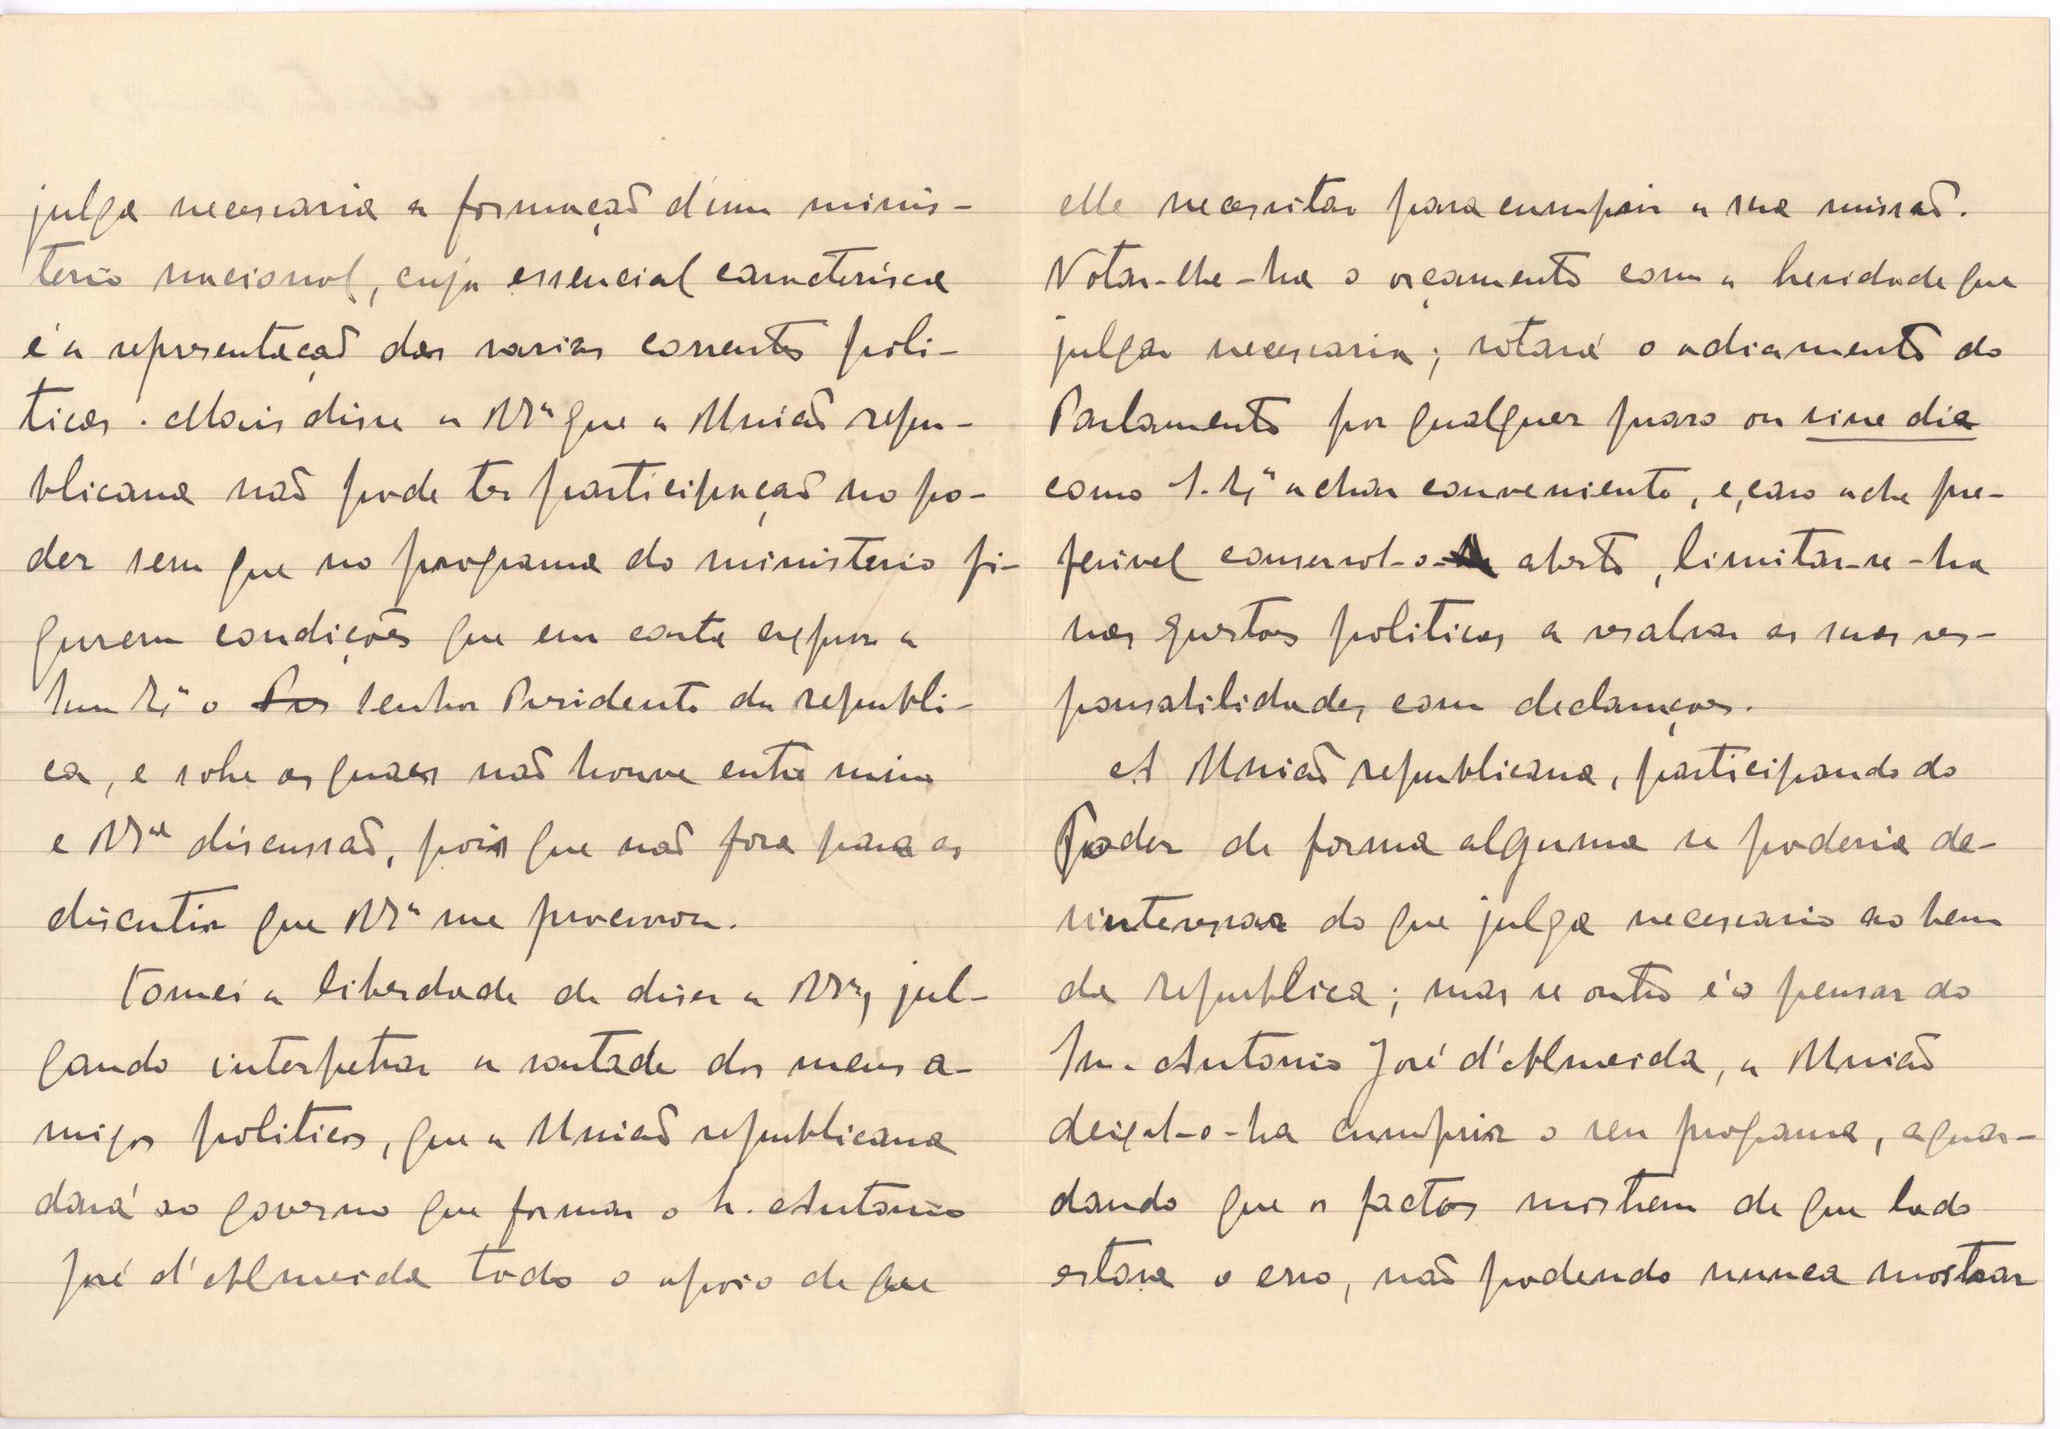 julga necessaria a formação d'um minis-
terio nacional, cuja essencial caracterisca
é a representação das varias correntes poli-
ticas. Mais disse a V.ª que a União repu-
blicana não pode ter participação no po-
der sem que no programa do ministerio fi-
gurem condições que em conta expuz a
Sua Ex.ª o Pres Senhor Presidente da republi-
ca, e sobre as quaes não houve entre mim
e V.ª discussão, pois que não fora para as
discutir que V.ª me procurou.
Tomei a liberdade de dizer a V.ª, jul-
gando interpetrar a vontade dos meus a-
migos politicos, que a União republicana
dará ao governo que formar o Sr. Antonio
José d'Almeida todo o apoio de que
elle necessitar para cumprir a sua missão.
Votar-lhe-ha o orçamento com a brevidade que
julgar necessaria; votará o adiamento do
Parlamento por qualquer praso ou sine dia
como S. Ex.ª achar conveniente, e, caso ache pre-
ferivel conserval-o aberto, limitar-se-ha
nas questões politicas a resalvar as suas res-
ponsabilidades com declarações.
A União republicana, participando do
Poder de forma alguma se poderia de-
sinteressar do que julga necessario ao bem
da republica; mas se outro é o pensar do
Sr. Antonio José d'Almeida, a União
deixal-o-ha cumprir o seu programa, aguar-
dando que os factos mostrem de que lado
estava o erro, não podendo nunca mostrar